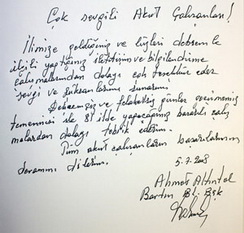 Çok sevgili Akut Çalışanları!
İlimize geldiğiniz ve lüzleri depremle
ilgili yaptığınız eğitim ve bilgilendirme
çalışmalarından dolayı çok teşekkür eder
sevgi ve şükranlarımı sunarım.
Depremsiz ve felaketsiz günler
temennisi ile 81 ilde yapacağınız başarılı çalış
malardan dolayı tebrik ederim.
Tüm akut çalışanların başarılarının
devamını dilerim.
5.7.2008
Ahmet Altıntal
Bartın Bl. Bşk